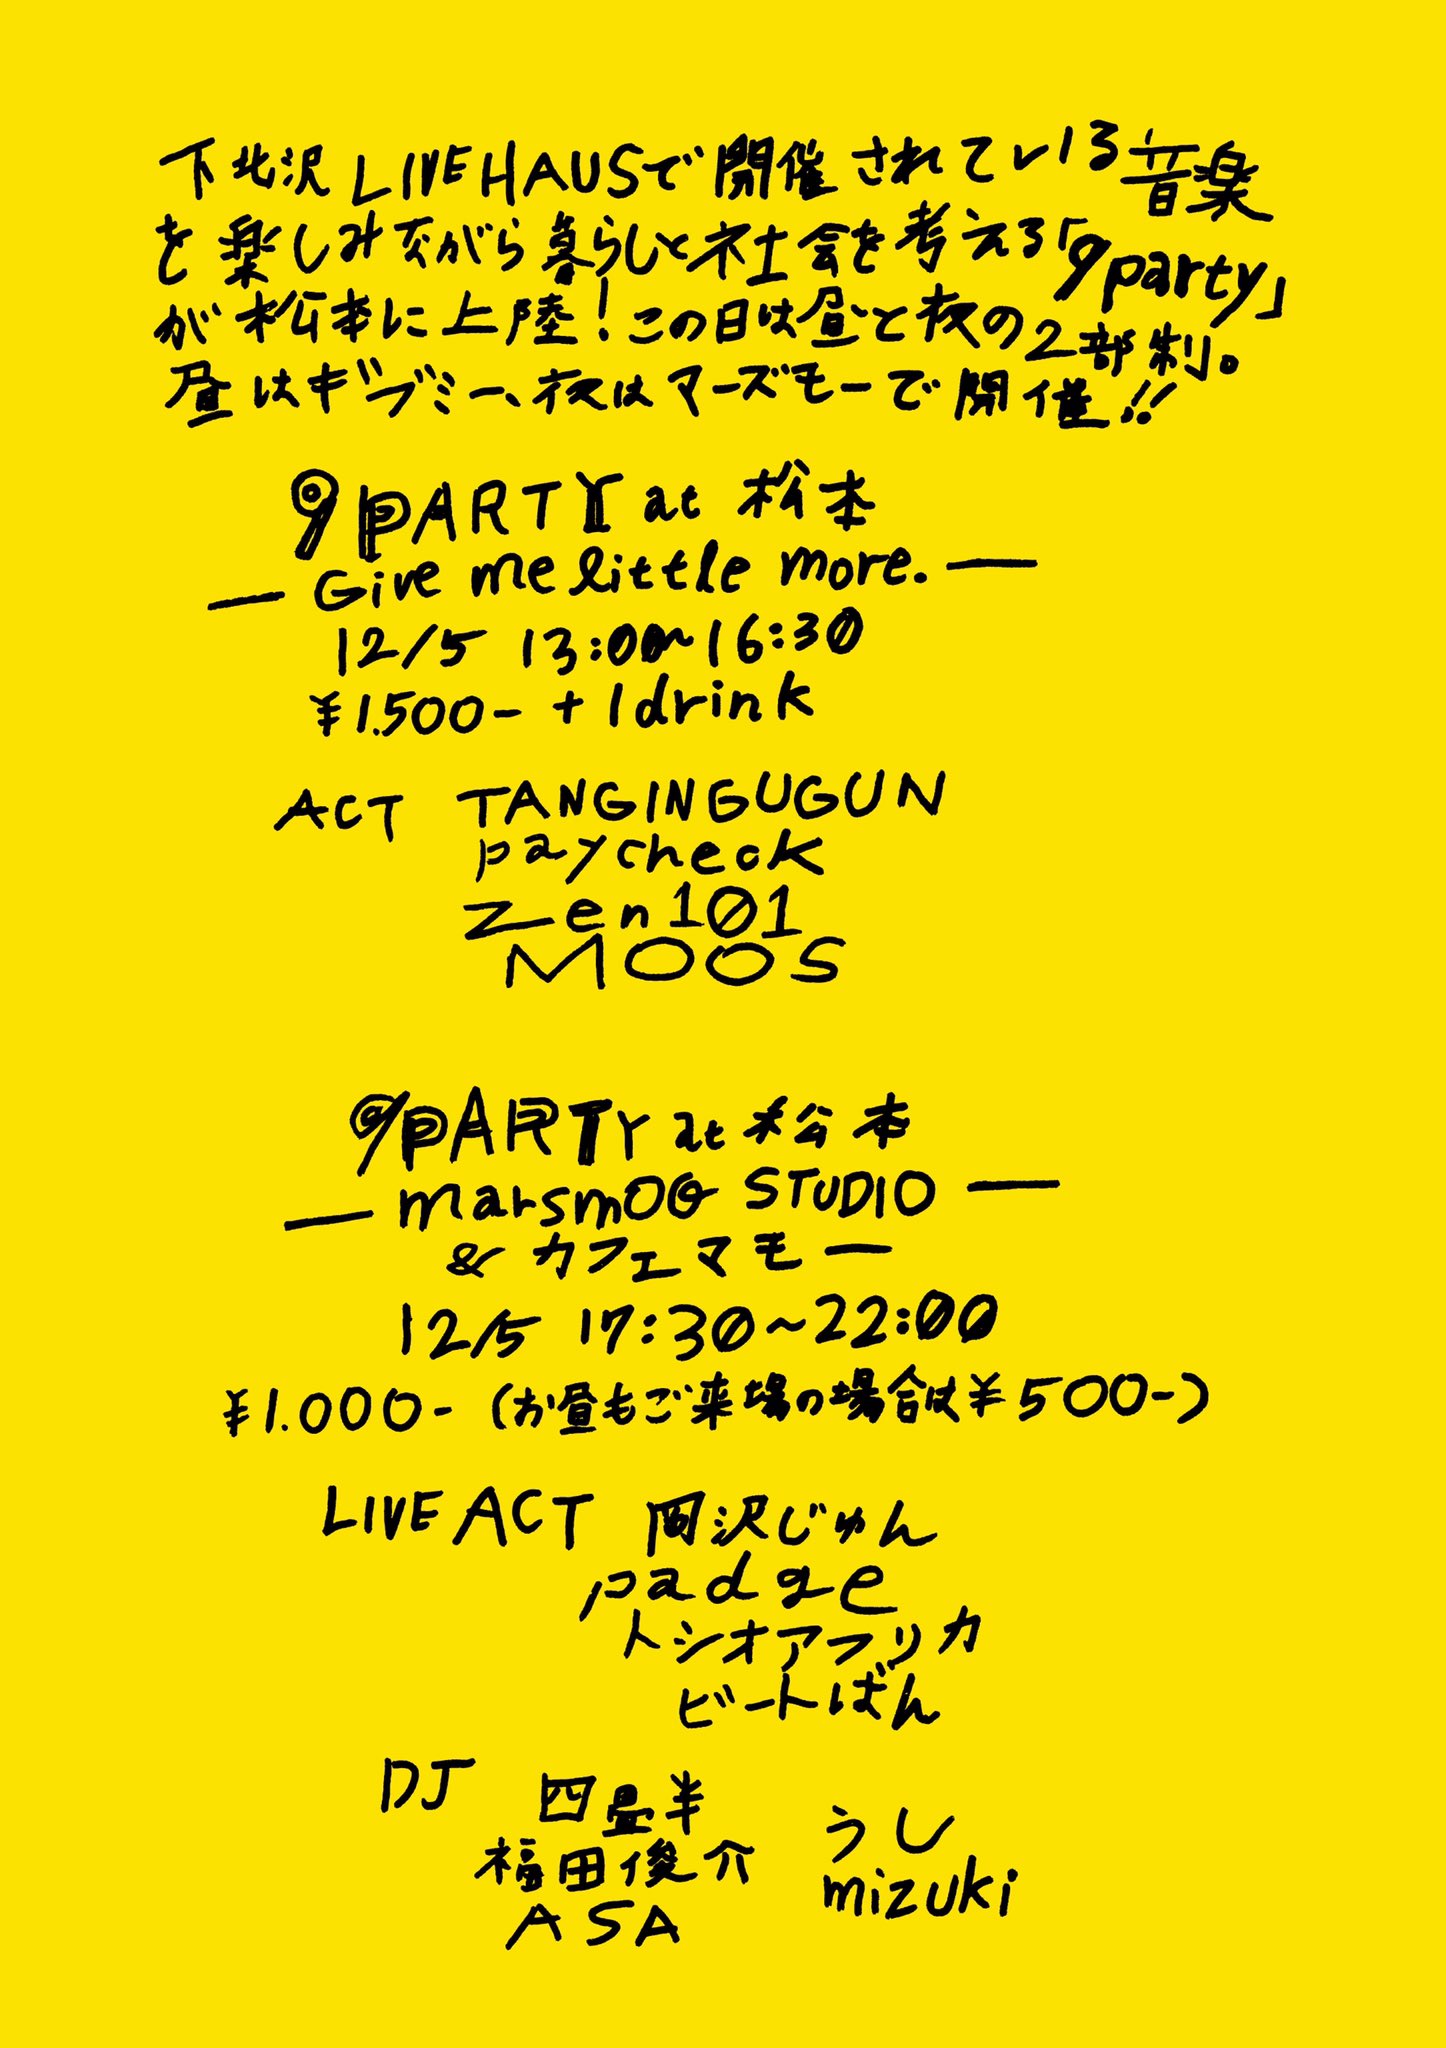 下北沢 LIVEHAUSで開催されている音楽
を楽しみながら暮らしと社会を考える「9party」
が松本に上陸！この日は昼と夜の2部制。
昼はギブミー、夜はマーズモーで開催!!
9PARTY at 松本
— Give me little more. —
12/5 13:00~16:30
¥1.500- + 1drink
ACT TANGINGUGUN
paycheck
zen101
MOOS
9PARTY at 松本
— marsmOG STUDIO —
& カフェマモー
12/5 17:30~22:00
¥1.000- (お昼もご来場の場合は¥500-)
LIVE ACT 岡沢じゅん
padge
トシオアフリカ
ビートばん
DJ 四畳半
福田俊介
ASA
うし
mizuki